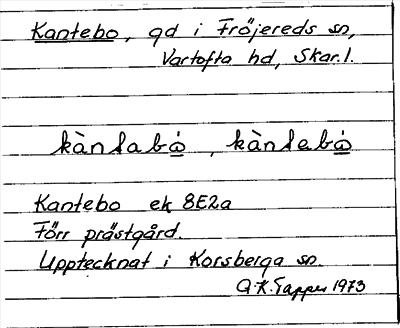 Kantebo, gd i Fröjereds sn,
Vartofta hd, Skar.l.
kàntabó̲, kàntebó̲
Kantebo ek 8E2a
Förr prästgård.
Upptecknat i Korsberga sn.
A-K. Tapper 1973